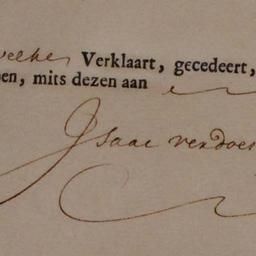 welke Verklaart, gecedeert,
en, mits dezen aan
Isaac verdoes